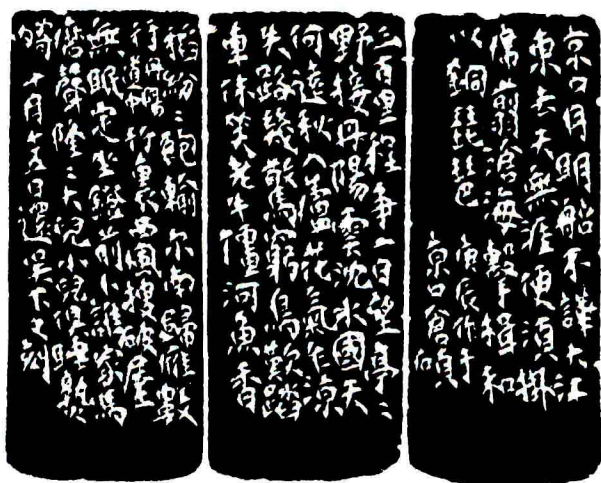 京口月明船不譁大江
東去天無涯便須掛
席翦滄海擊楫和
以銅琵琶
庚辰作于
京口倉碩
三百里程爭一日望亭〻
野接丹陽雲沈水國天
何遠秋入蘆花氣乍涼
失路幾驚窮鳥歎踏
車休笑老牛僵河魚香
稻紛〻飽輸尔南歸雁數
行丹陽道中行裏西風搜破屋
無眠定坐鐙前卜誰家馬
磨聲隆〻大兒小兒俱睡熟
十月十五日還吳下又刻